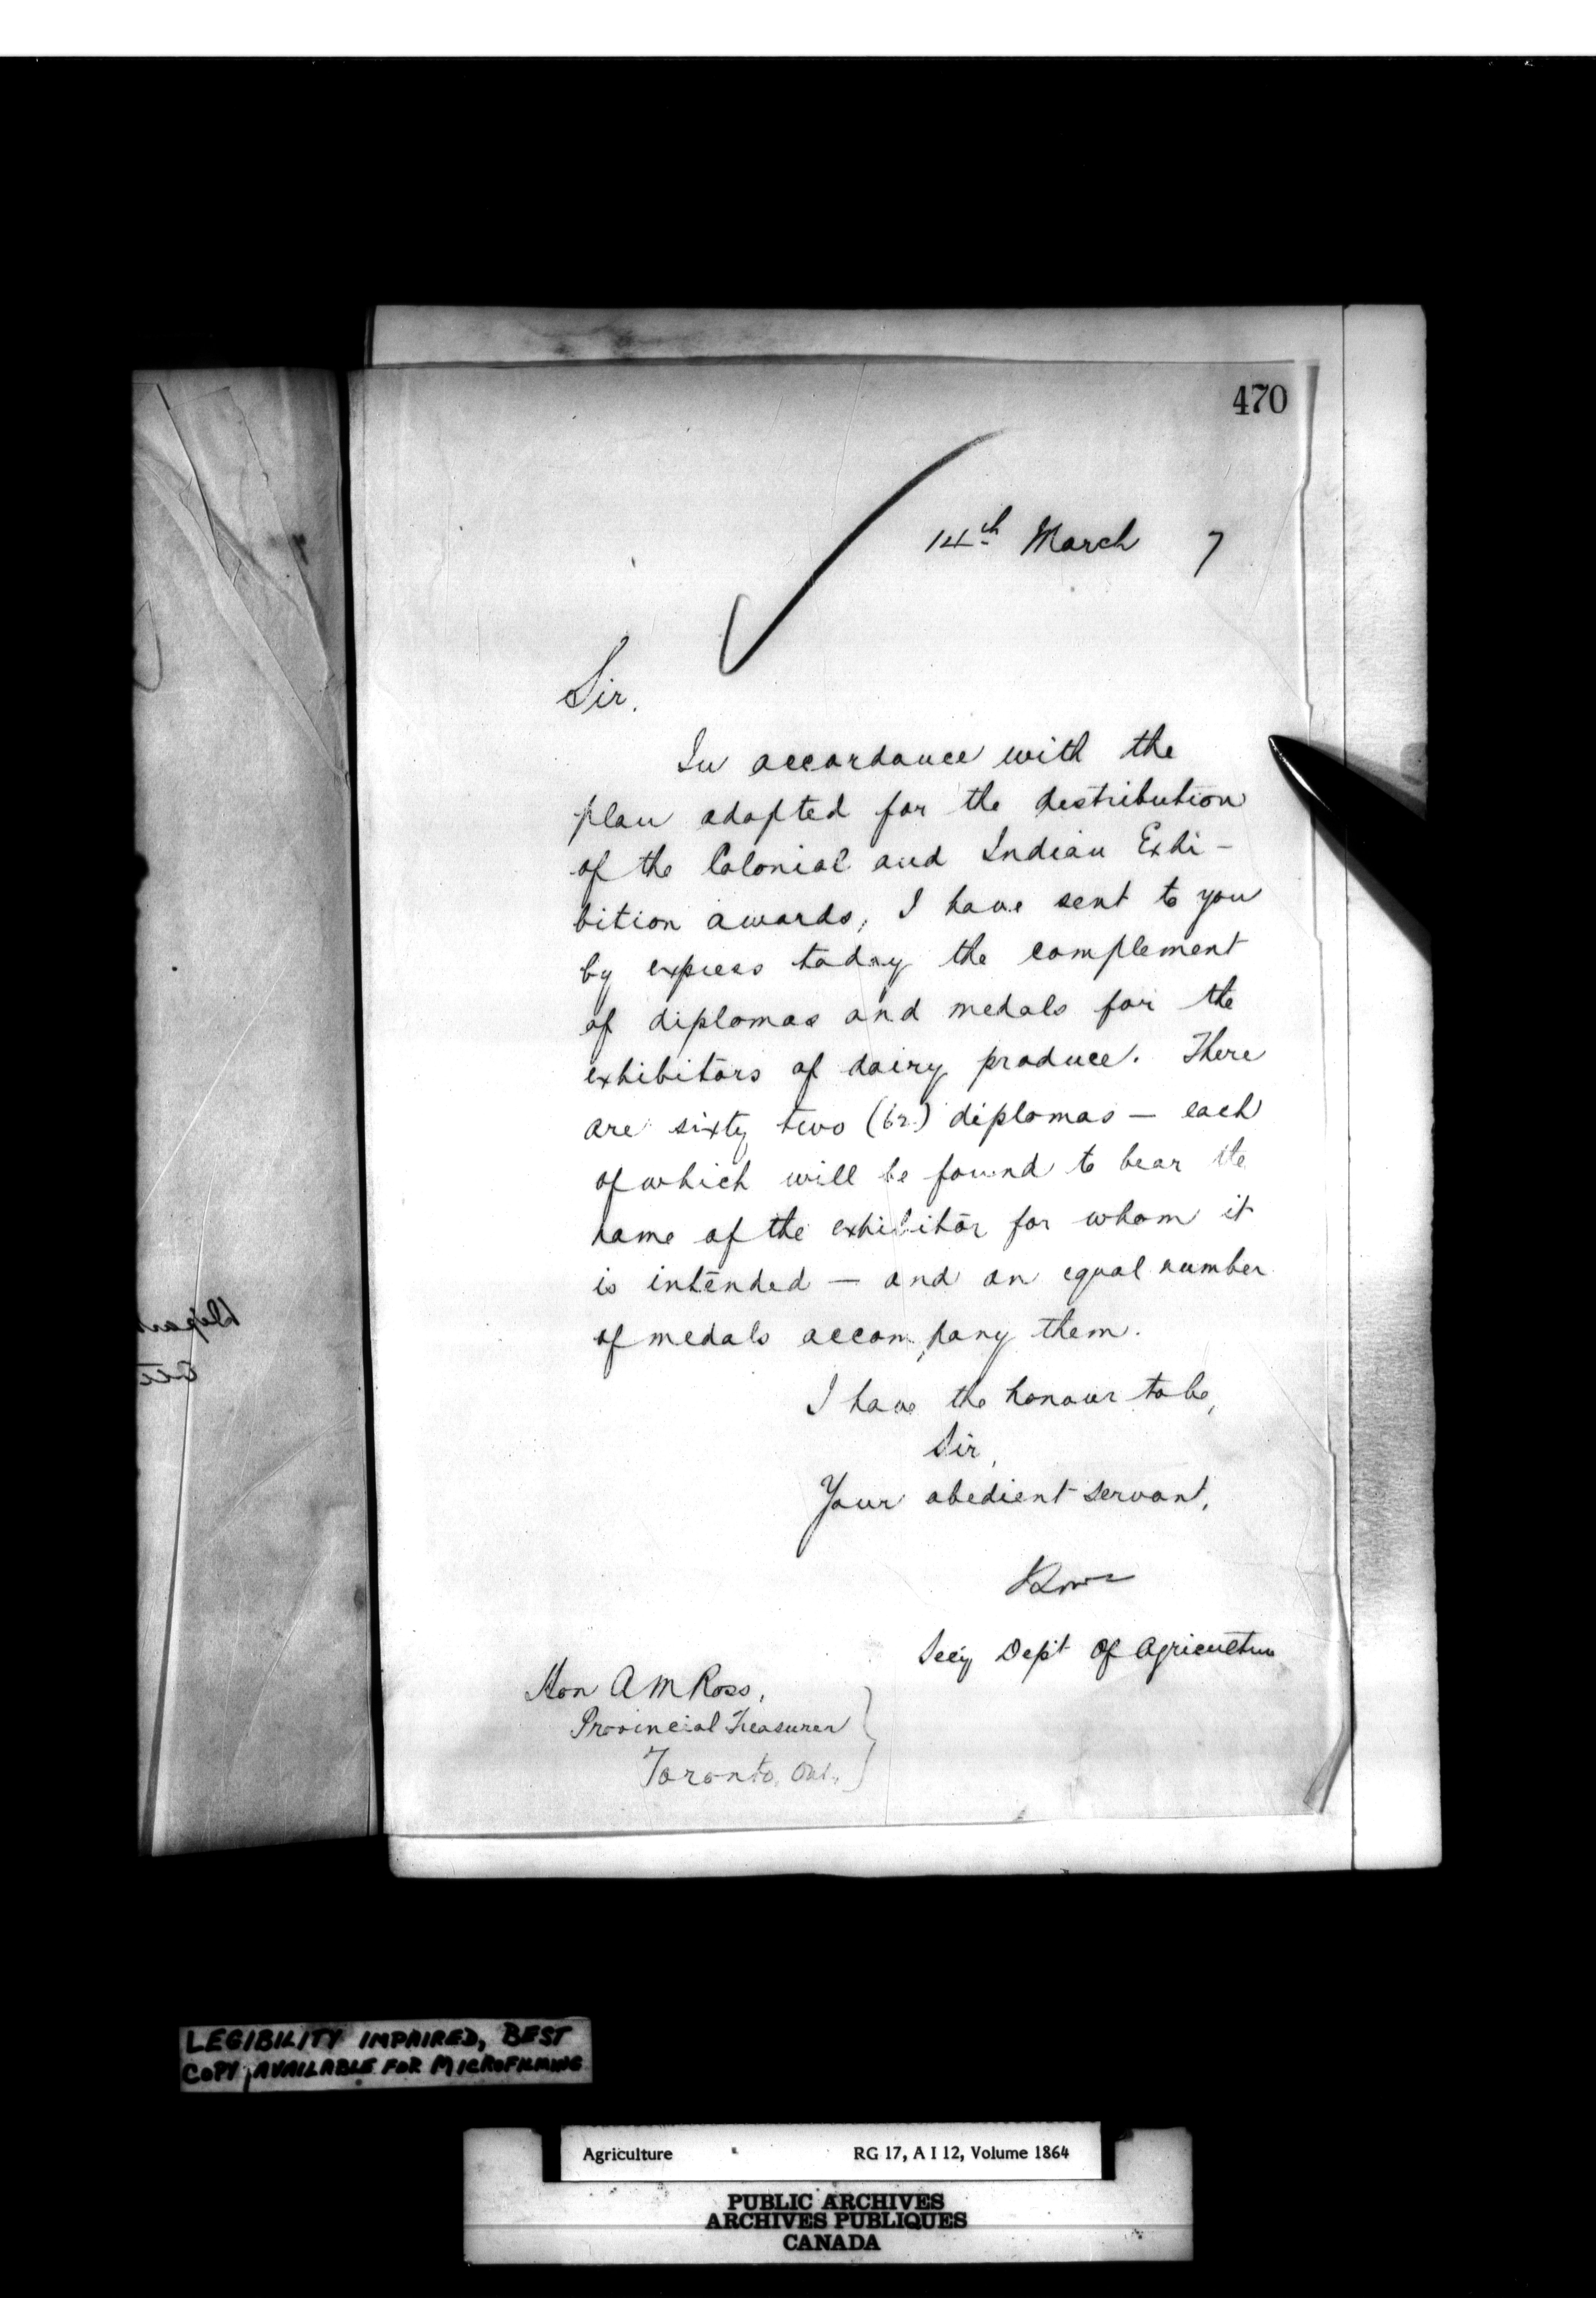 470
14th March 7
Sir,
In accordance with the
plan adopted for the distribution
of the Colonial and Indian Exhi-
bition awards, I have sent to you
by express today the complement
of diplomas and medals for the
exhibitors of dairy produce. There
are sixty two (62) diplomas — each
of which will be found to bear the
name of the exhibitor for whom it
is intended — and an equal number
of medals accompany them.
I have the honour to be,
Sir,
Your obedient servant,
Secy Dept of Agriculture
Hon A M Ross,
Provincial Treasurer
Toronto, Ont.
LEGIBILITY IMPAIRED, BEST
COPY AVAILABLE FOR MICROFILMING
Agriculture RG 17, A I 12, Volume 1864
PUBLIC ARCHIVES
ARCHIVES PUBLIQUES
CANADA